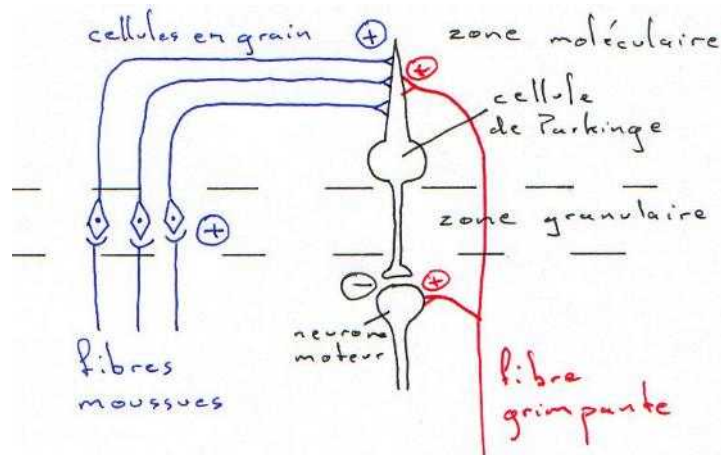 cellules en grain
+
zone moléculaire
+
cellule
de Parkinge
+
zone granulaire
-
+
neurone
moteur
fibres
moussues
fibre
grimpante